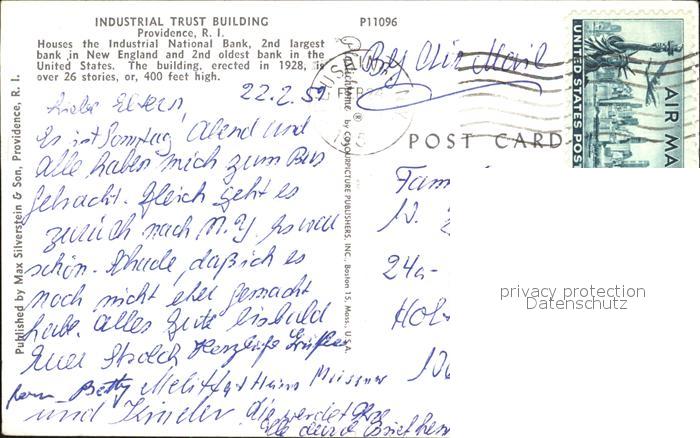 INDUSTRIAL TRUST BUILDING
Providence, R. I.
Houses the Industrial National Bank, 2nd largest
bank in New England and 2nd oldest bank in the
United States. The building, erected in 1928, is
over 26 stories, or, 400 feet high.
P11096
By Air Mail
UNITED STATES POS
AIR MA
POST CARD
Published by Max Silverstein & Son, Providence, R. I.
Plastichrome ® by COLOURPICTURE PUBLISHERS, INC., Boston 15, Mass., U.S.A.
22.2.59
Liebe Eltern
Es ist Sonntag Abend und
alle haben mich zum Bus
gebracht. Gleich geht es
zurück nach N.Y. Es war
schön. Schade, daß ich es
noch nicht eher gemacht
habe. Alles Gute bis bald
Euer Strolch Herzliche Grüße
von Betty Hans Meissner
und Kinder
Fam
10.
24a-
Hol
privacy protection
Datenschutz